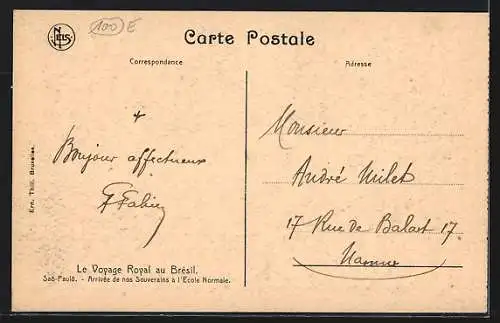 NELS
100 E
Carte Postale
Correspondance
Adresse
+
Bonjour affectueux
Ern. Thill, Bruxelles.
Le Voyage Royal au Brésil.
Sao-Paulo. - Arrivée de nos Souverains à l'Ecole Normale.
Monsieur
André Milet
17 Rue de Balart 17
Namur